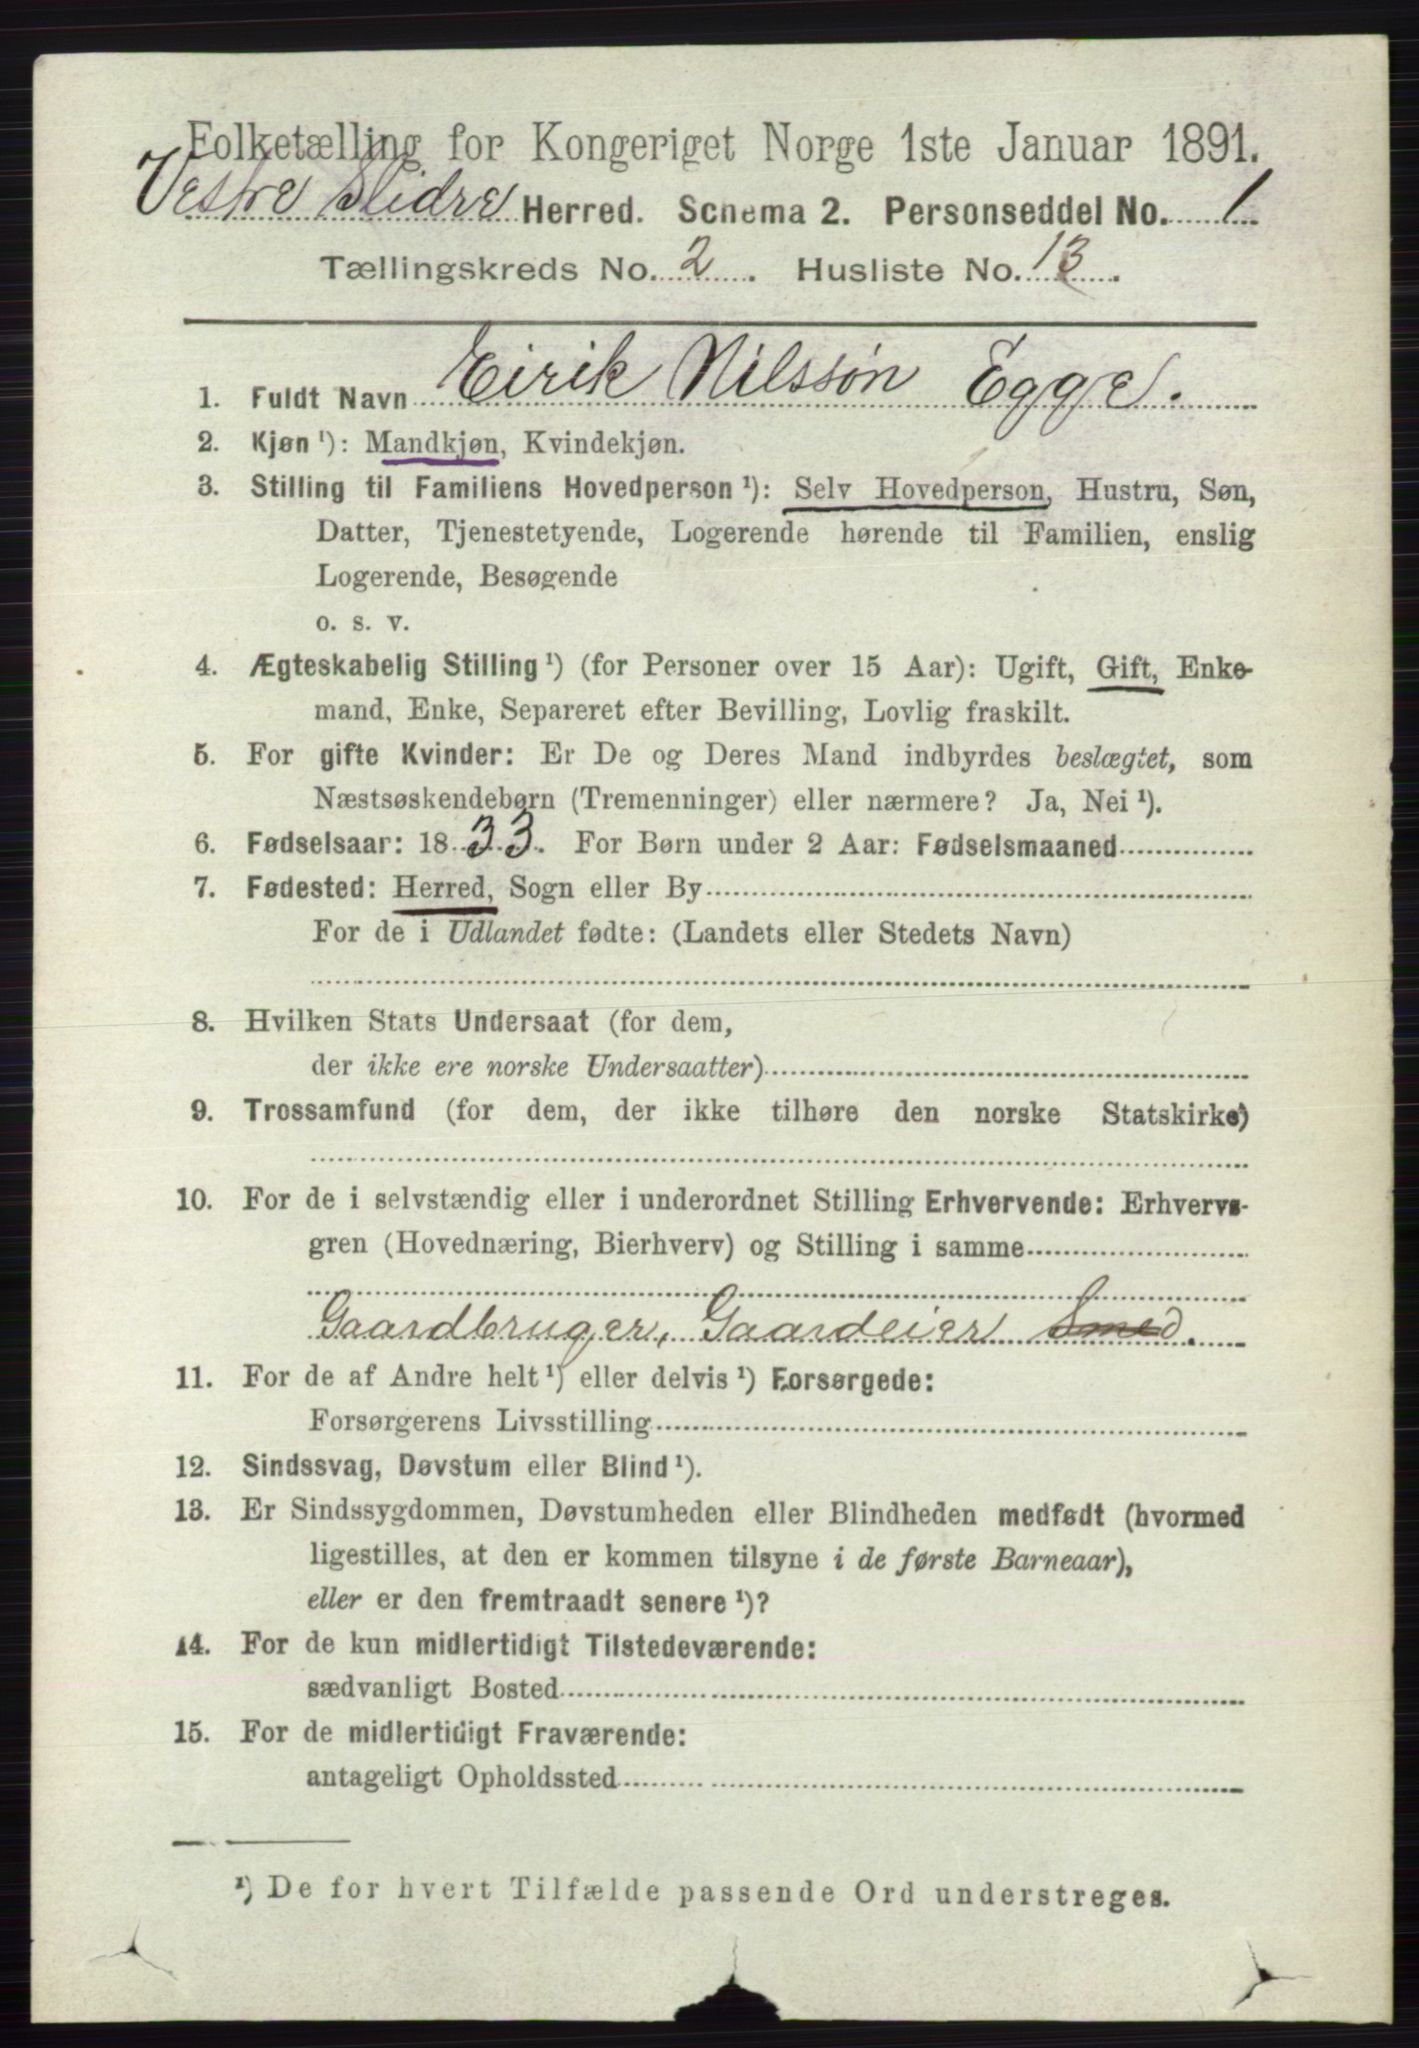 Folketælling for Kongeriget Norge 1ste Januar 1891.
Vestre Slidre Herred. Schema 2. Personseddel No. 1
Tællingskreds No. 2. Husliste No. 13.
1. Fuldt Navn Eirik Nilssøn Egge.
2. Kjøn ¹): Mandkjøn, Kvindekjøn.
3. Stilling til Familiens Hovedperson ¹): Selv Hovedperson, Hustru, Søn,
Datter, Tjenestetyende, Logerende hørende til Familien, enslig
Logerende, Besøgende
o. s. v.
4. Ægteskabelig Stilling ¹) (for Personer over 15 Aar): Ugift, Gift, Enke-
mand, Enke, Separeret efter Bevilling, Lovlig fraskilt.
5. For gifte Kvinder: Er De og Deres Mand indbyrdes beslægtet, som
Næstsøskendebørn (Tremenninger) eller nærmere? Ja, Nei ¹).
6. Fødselsaar: 1833. For Børn under 2 Aar: Fødselsmaaned
7. Fødested: Herred, Sogn eller By
For de i Udlandet fødte: (Landets eller Stedets Navn)
8. Hvilken Stats Undersaat (for dem,
der ikke ere norske Undersaatter)
9. Trossamfund (for dem, der ikke tilhøre den norske Statskirke)
10. For de i selvstændig eller i underordnet Stilling Erhvervende: Erhvervs-
gren (Hovednæring, Bierhverv) og Stilling i samme
Gaardbruger, Gaardeier Smed.
11. For de af Andre helt ¹) eller delvis ¹) Forsørgede:
Forsørgerens Livsstilling
12. Sindssvag, Døvstum eller Blind ¹).
13. Er Sindssygdommen, Døvstumheden eller Blindheden medfødt (hvormed
ligestilles, at den er kommen tilsyne i de første Barneaar),
eller er den fremtraadt senere ¹)?
14. For de kun midlertidigt Tilstedeværende:
sædvanligt Bosted
15. For de midlertidigt Fraværende:
antageligt Opholdssted
¹) De for hvert Tilfælde passende Ord understreges.